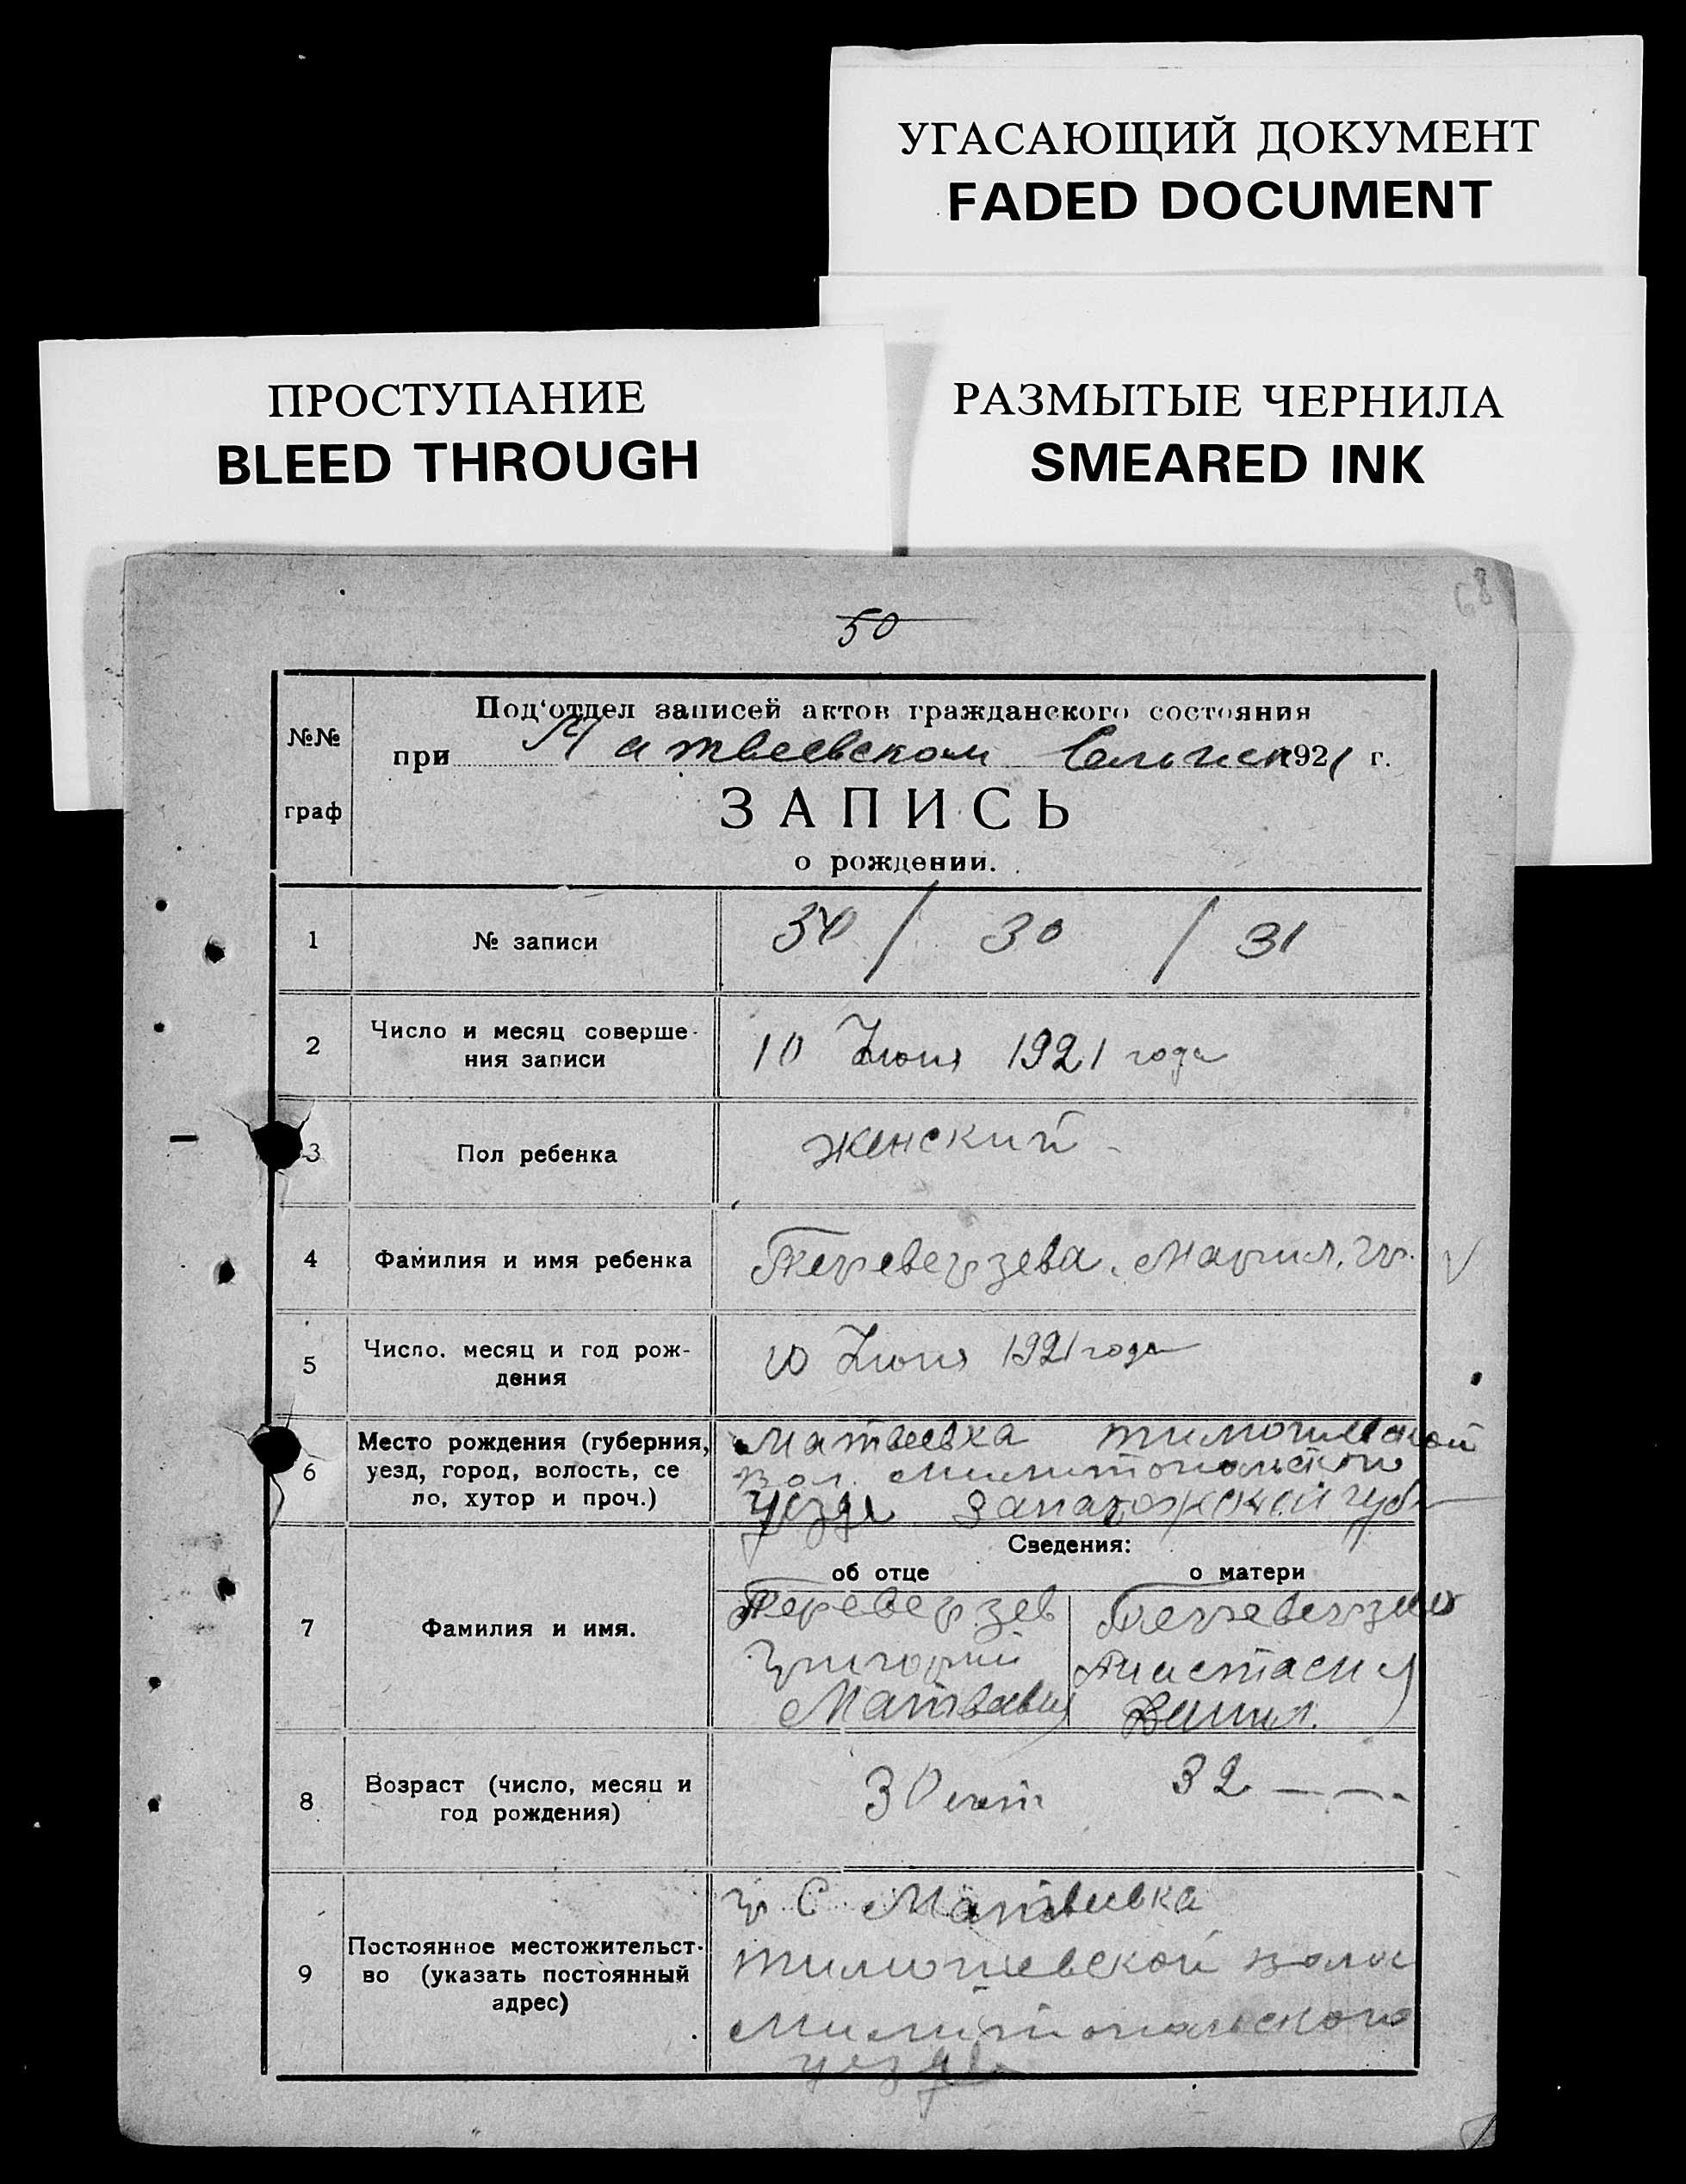 УГАСАЮЩИЙ ДОКУМЕНТ
FADED DOCUMENT
ПРОСТУПАНИЕ
BLEED THROUGH
РАЗМЫТЫЕ ЧЕРНИЛА
SMEARED INK
68
50
№№
граф
Под‘отдел записей актов гражданского состояния
при Матвеевском 1921 г.
ЗАПИСЬ
о рождении.
1 № записи 30 / 30 / 31
2 Число и месяц соверше-
ния записи 10 Июня 1921 года
3 Пол ребенка женский
4 Фамилия и имя ребенка Переверзева Мария. Гр. V
5 Число. месяц и год рож-
дения 10 Июня 1921 года
6 Место рождения (губерния,
уезд, город, волость, се
ло, хутор и проч.)
Матвеевка тимошевской
вол. Милитопольского
уезда Запарожской губ
Сведения:
об отце о матери
7 Фамилия и имя.
Переверзев
Григорий
Матвеевич
Переверзева
Анастасия
Данил.
8 Возраст (число, месяц и
год рождения)
30 лет 32 — —
9 Постоянное местожительст-
во (указать постоянный
адрес)
С Матвеевка
тимошевской волос
Милитопольского
уезда